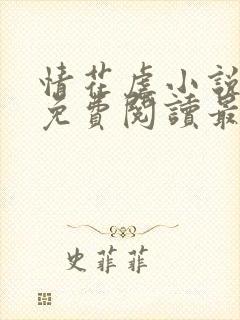 情花虐小說
免費閱讀最
史菲菲